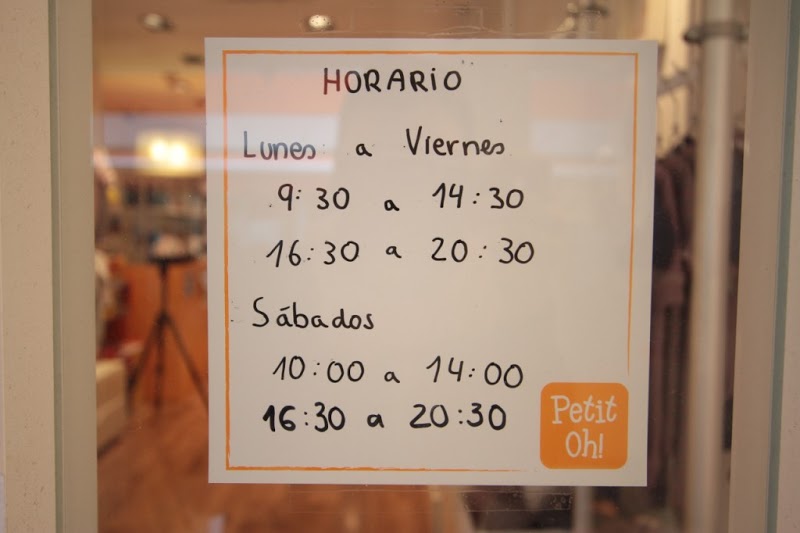 HORARIO
Lunes a Viernes
9:30 a 14:30
16:30 a 20:30
Sábados
10:00 a 14:00
16:30 a 20:30
Petit
Oh!